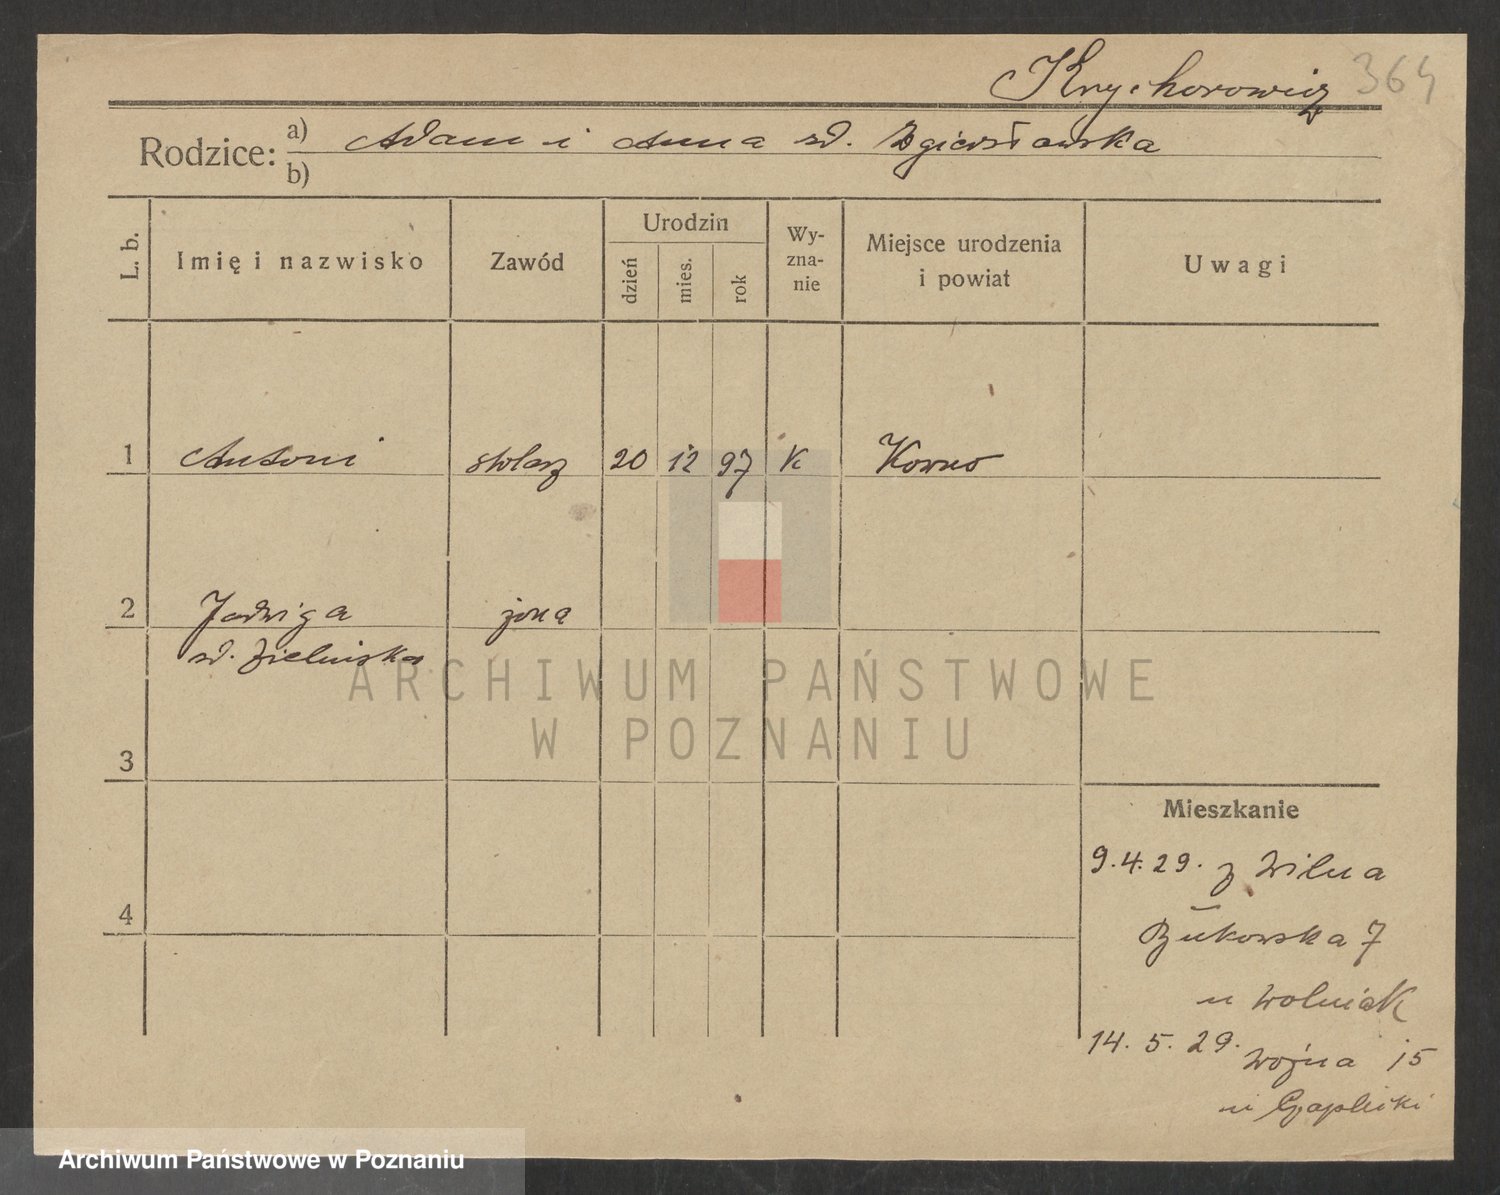 Krychorowicz 364
Rodzice: a) Adam i Anna zd.
b)
L. b. Imię i nazwisko Zawód Urodzin dzień mies. rok Wy-zna-nie Miejsce urodzenia i powiat Uwagi
1 Antoni stolarz 20 12 97 K Kowno
2 Jadwiga żona
zd. Zielińska
ARCHIWUM PAŃSTWOWE
W POZNANIU
3
Mieszkanie
9.4.29. z Wilna
4
Bukowska 7
u Wolniak
14. 5. 29. Woźna 15
u
Archiwum Państwowe w Poznaniu